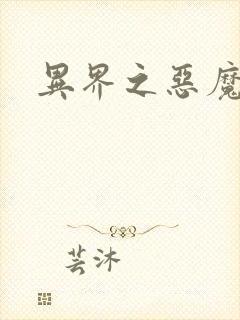 異界之惡魔
芸沐